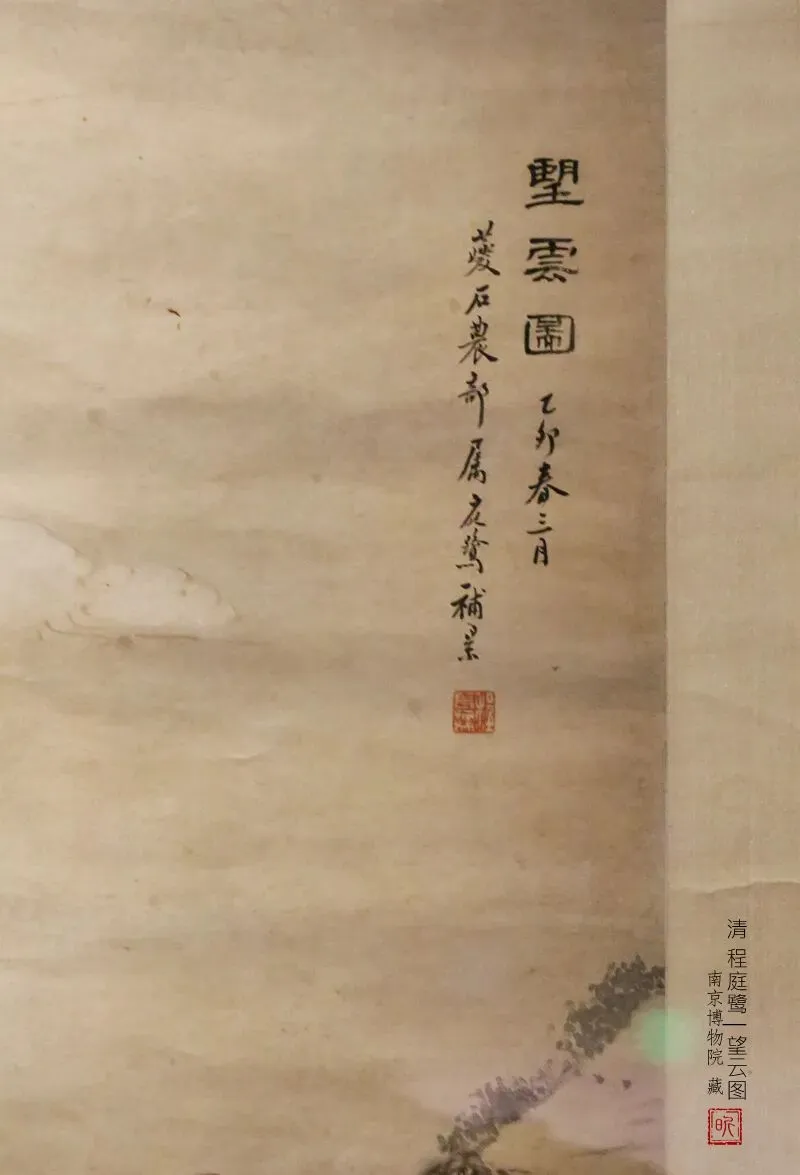 朢雲圖 乙卯春三月
蔆石農部属庭鷺補景
清 程庭鹭—望云图
南京博物院 藏